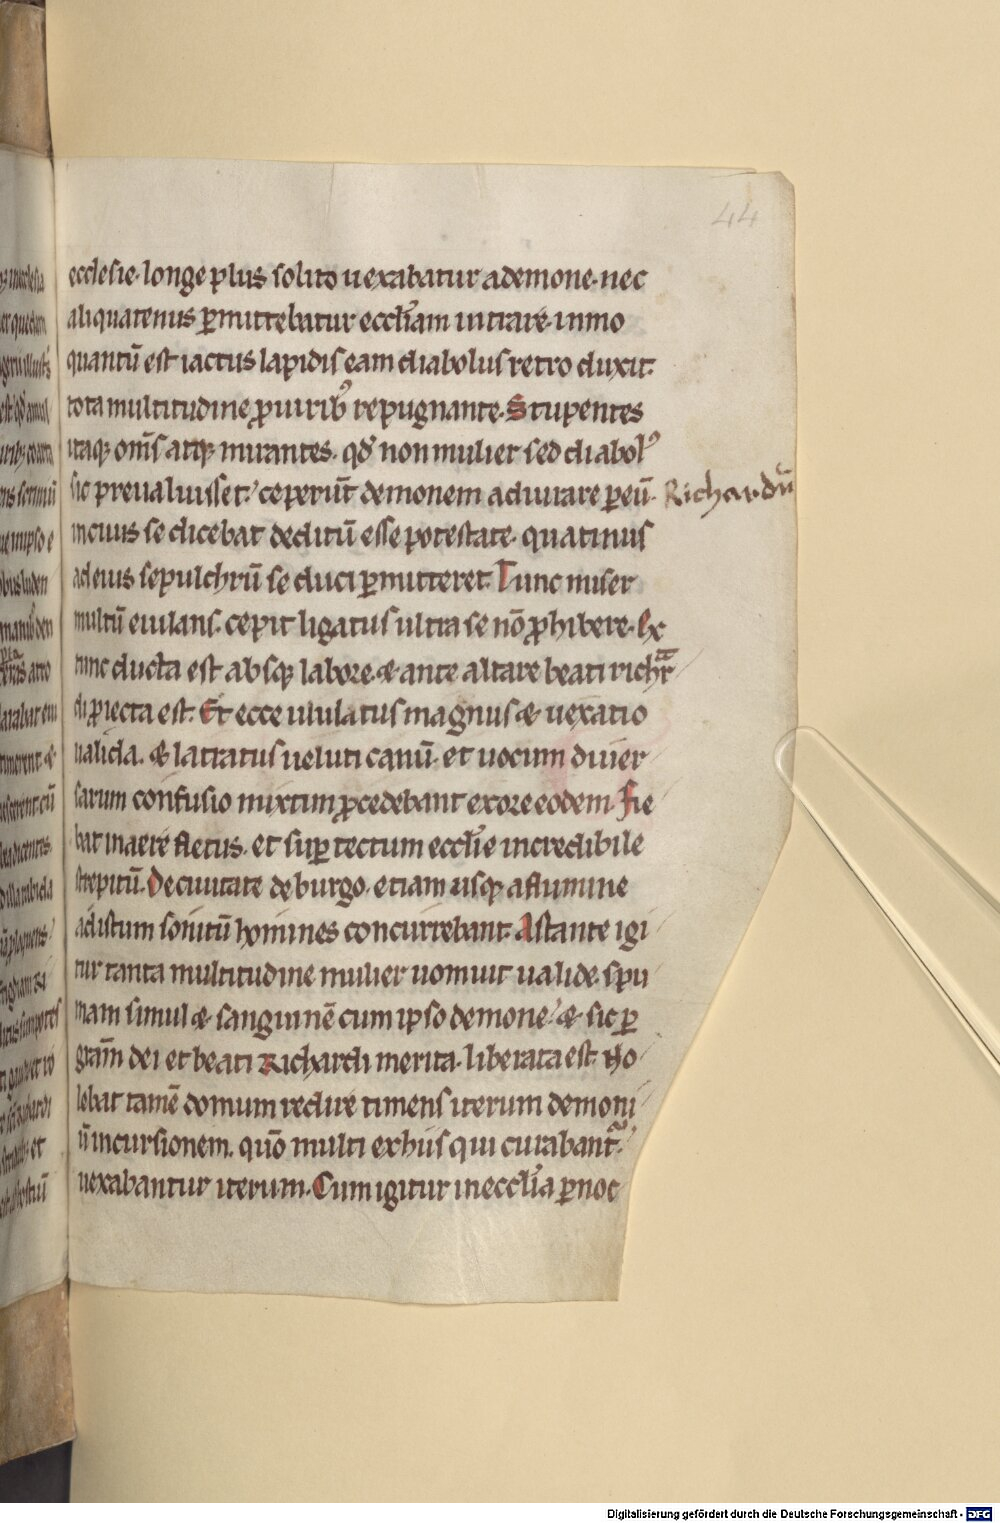 44
ecclesie· longe plus solito uexabatur ademone· nec
aliquatenus ꝑmittebatur eccl̅iam intrare· inmo
quantū est iactus lapidis eam diabolus retro duxit·
tota multitudine ꝓuirib᷒ repugnante· Stupentes
itaqꝫ om̅s atqꝫ mirantes· qd̅ non mulier sed diabol᷒
sic preualuisset· ceperūt demonem adiurare ꝑ eū·
Richardū
incuius se dicebat deditū esse potestate· quatinus
ad eius sepulchrū se duci ꝑmitteret· Tunc miser
multū eiulans· cepit ligatus ultra se nō ꝓhibere· Ex
tunc ducta est absqꝫ labore· ⁊ ante altare beati rich̅r
di ꝓiecta est· Et ecce ululatus magnus ⁊ uexatio
ualida· ⁊ latratus ueluti canū· et uocum diuer
sarum confusio mixtim ꝓcedebant exore eodem· Fie
bat inaere fletus· et suꝑ tectum eccl̅ie incredibile
strepitū· Deciuitate de burgo· etiam usqꝫ aflumine
adistum sonitū homines concurrebant· Astante igi
tur tanta multitudine mulier uomuit ualide· spu
mam simul ⁊ sanguinē cum ipso demone· ⁊ sic ꝑ
gram̅ dei et beati Richardi merita· liberata est· No
lebat tamē domum redire timens iterum demoni
ū incursionem· quō multi exhiis qui curabant᷑·
uexabantur iterum· Cum igitur ineccl̅ia ꝑnoc
Digitalisierung gefördert durch die Deutsche Forschungsgemeinschaft - DFG